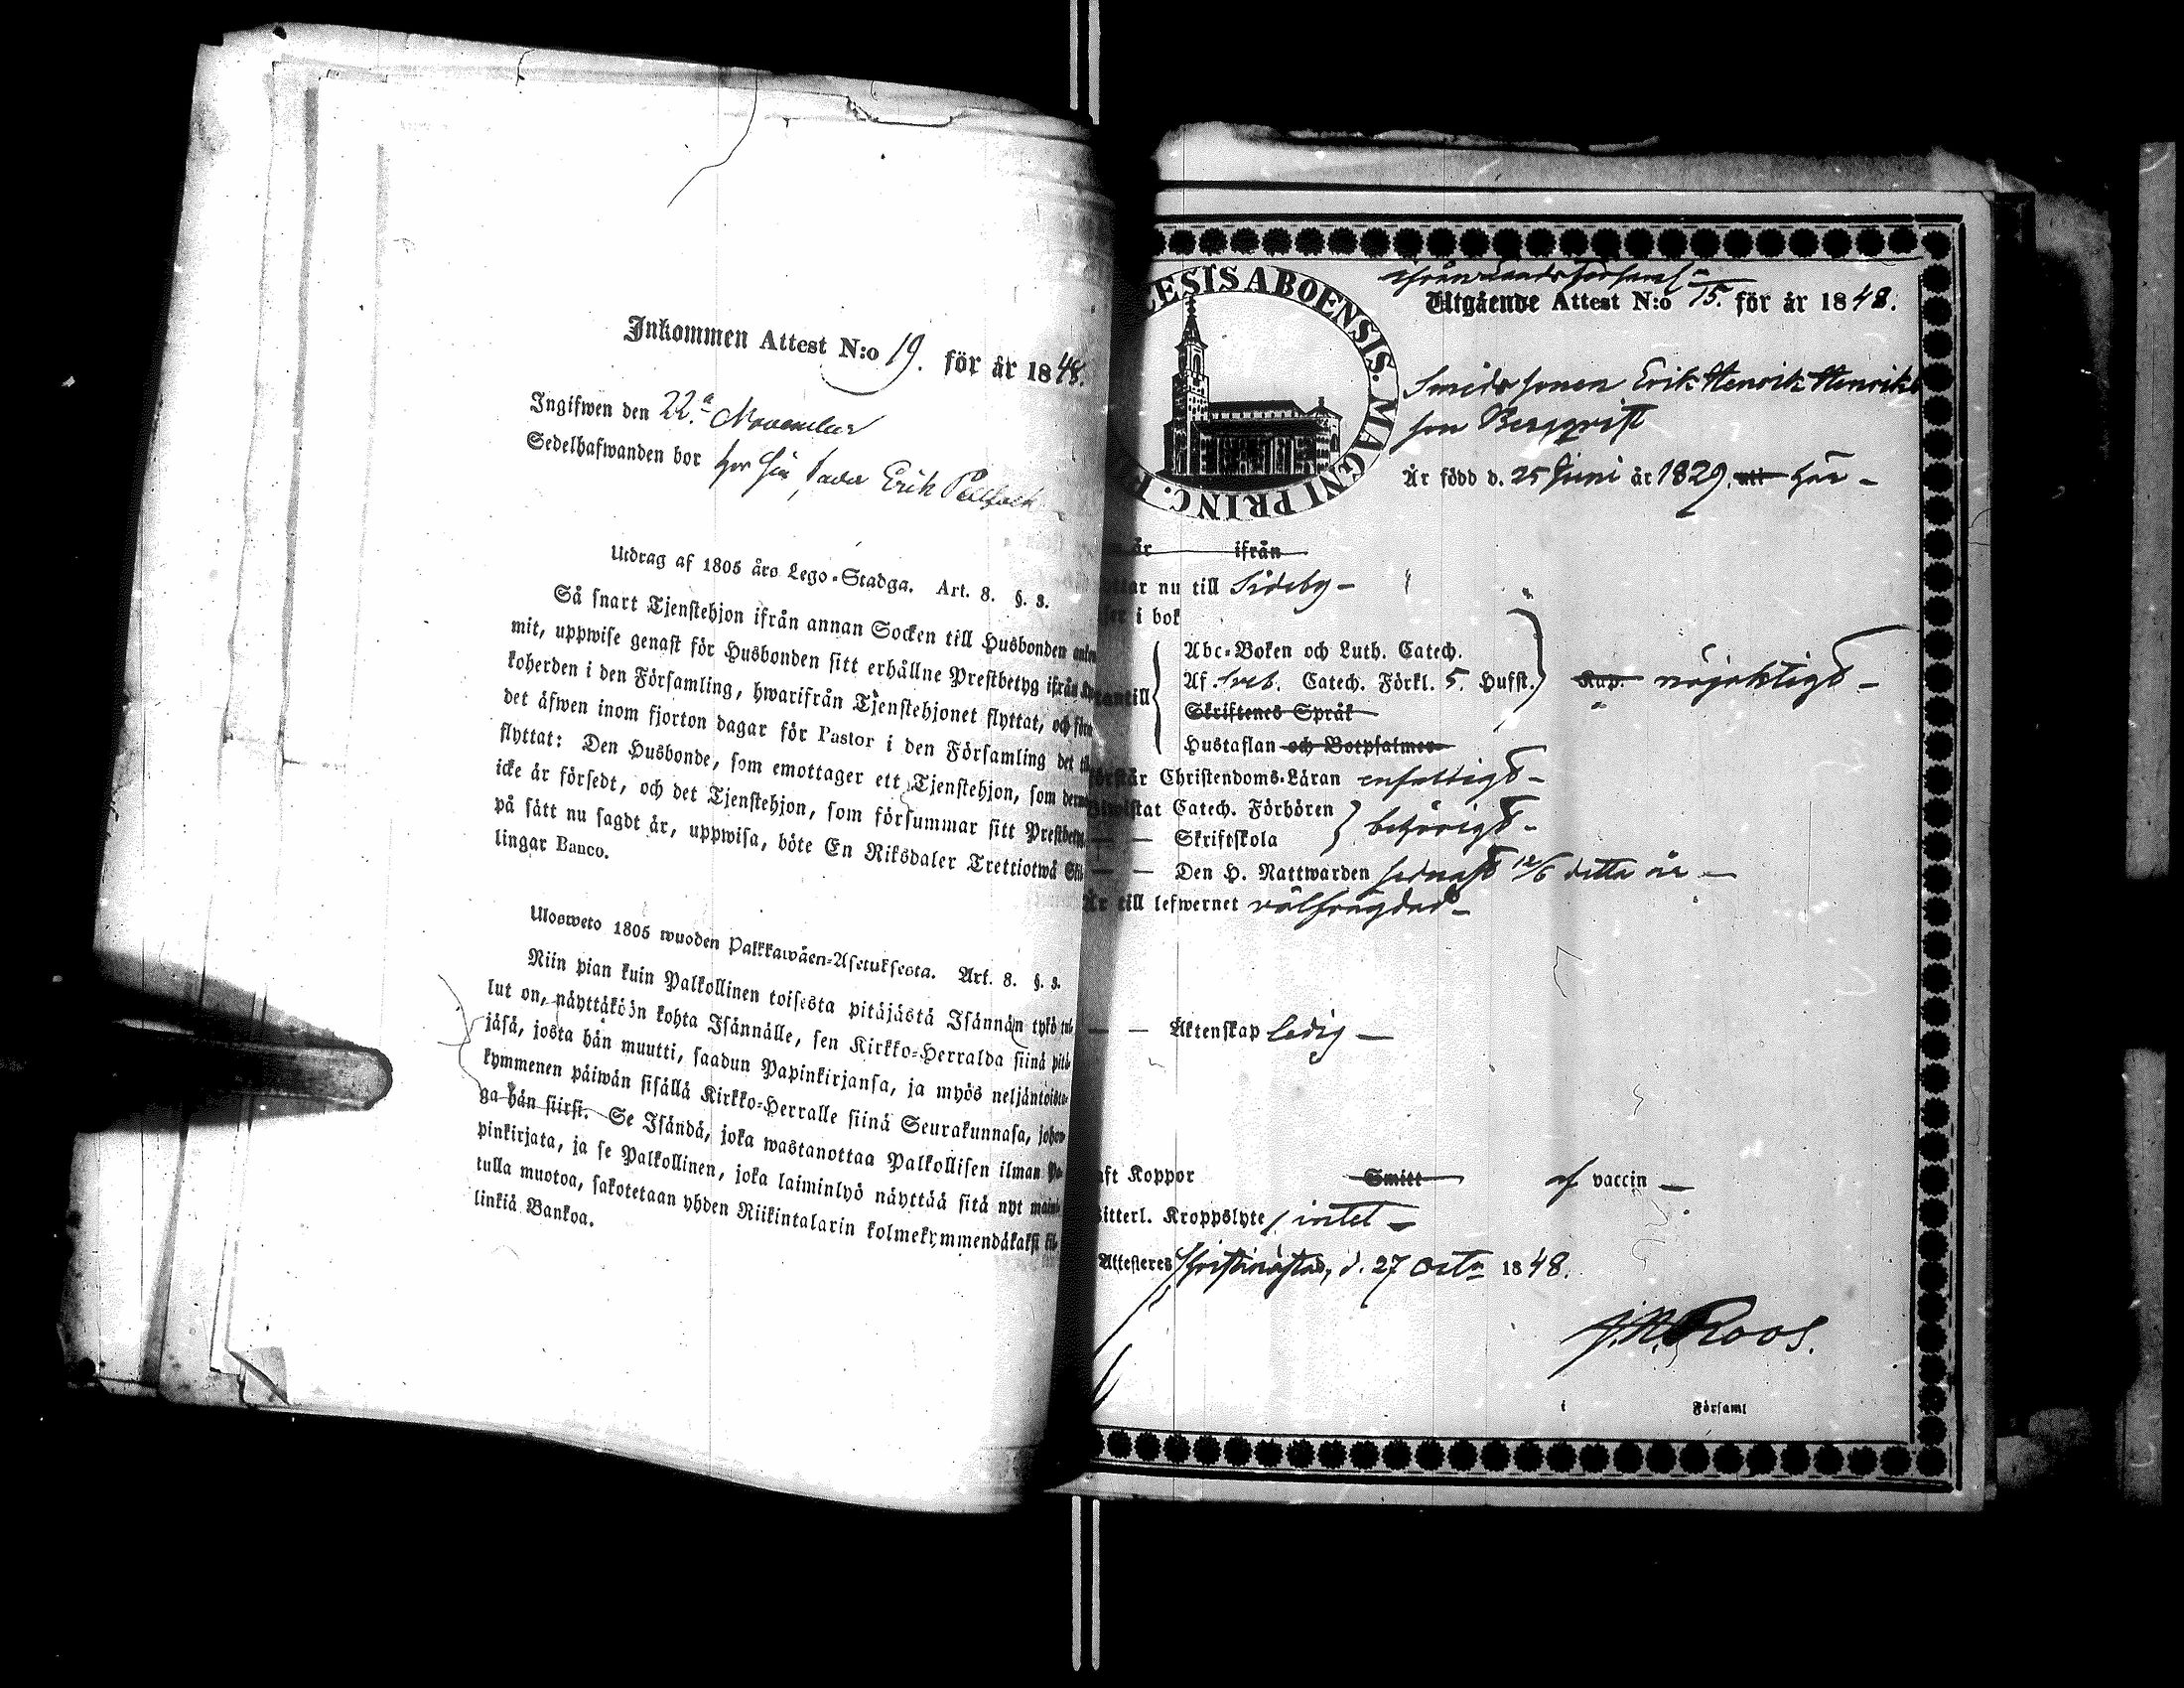 Inkommen Attest N:o 19. för år 1848.
Ingifwen den 22.a November
Sedelhafwanden bor hos sin fader Erik
Utdrag af 1805 års Lego-Stadga. Art. 8. §. 3.
Så snart Tjenstehjon ifrån annan Socken till Husbonden
mit, uppwise genast för Husbonden sitt erhållne Prestbetyg ifrån
koherden i den Församling, hwarifrån Tjenstehjonet flyttat, och
det äfwen inom fjorton dagar för Pastor i den Församling det
flyttat: Den Husbonde, som emottager ett Tjenstehjon, som
icke är försedt, och det Tjenstehjon, som försummar sitt Prestbetyg
på sätt nu sagdt är, uppwisa, böte En Riksdaler Trettiotwå Skil
lingar Banco.
Ulosweto 1805 wuoden Palkkawäen-Asetuksesta. Art. 8. §. 3.
Niin pian kuin Palkollinen toisesta pitäjästä Isännän tykö tul
lut on, näyttäköön kohta Isännälle, sen Kirkko-Herralda siinä pitä
jäsä, josta hän muutti, saadun Papinkirjansa, ja myös neljäntoista
kymmenen päiwän sisällä Kirkko-Herralle siinä Seurakunnasa, johon
ga hän siirsi. Se Isändä, joka wastanottaa Palkollisen ilman Pa
pinkirjata, ja se Palkollinen, joka laiminlyö näyttää sitä nyt mainit
tulla muotoa, sakotetaan yhden Riikintalarin kolmekymmendäkaksi kil
linkiä Bankoa.
ESIS ABOENSIS. MAGNI PRINC. F
ifrån Landsförsaml
Utgående Attest N:o 15. för år 1848.
Smeds sonen Erik Henrik Henriks
son Bergqvist
Är född d. 25 Juni år 1829. uti här –
år ifrån
ttar nu till Sideby –
i bok
Abc-Boken och Luth. Catech.
Af Sveb. Catech. Förkl. 5. Hufst. Kap. nöjaktigt –
antill
Skriftenes Språk
Hustaflan och Botpsalmer
Förstår Christendoms-Läran enfaldigt –
Biwistat Catech. Förhören
— — Skriftskola behörigt –
— — Den H. Nattwarden sednast 12/6 detta år –
Är till lefwernet välfrägdad –
— — Äktenskap ledig –
aft Koppor Smitt af vaccin –
itterl. Kroppslyte / intet –
Attesteres Christinestad, d. 27 Octr 1848.
J.N. Roos.
i Församl